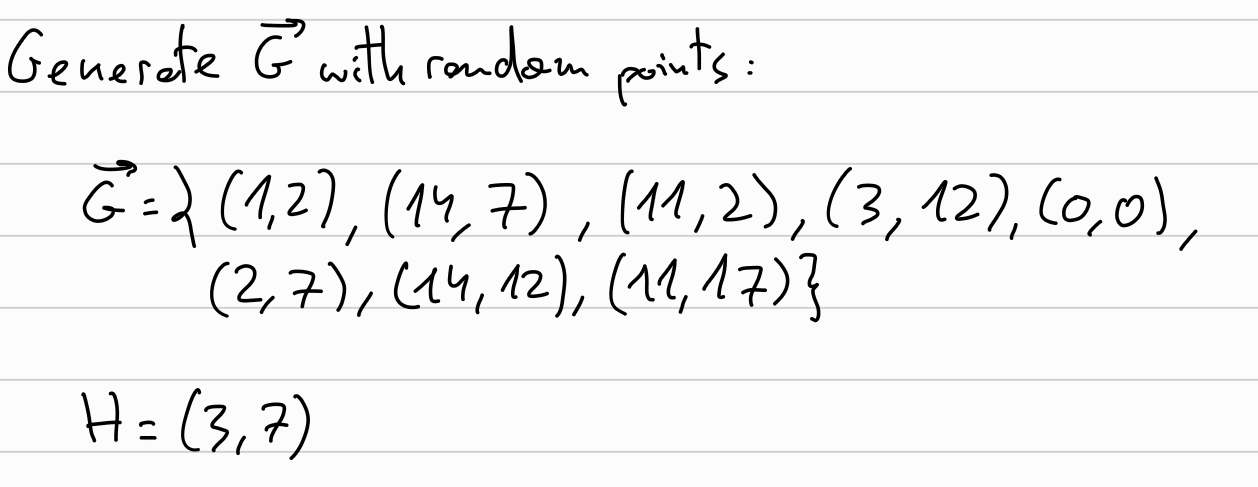 Generate G⃗ with random points:
G⃗ = { (1,2), (14,7), (11,2), (3,12), (0,0),
(2,7), (14,12), (11,17)}
H = (3,7)